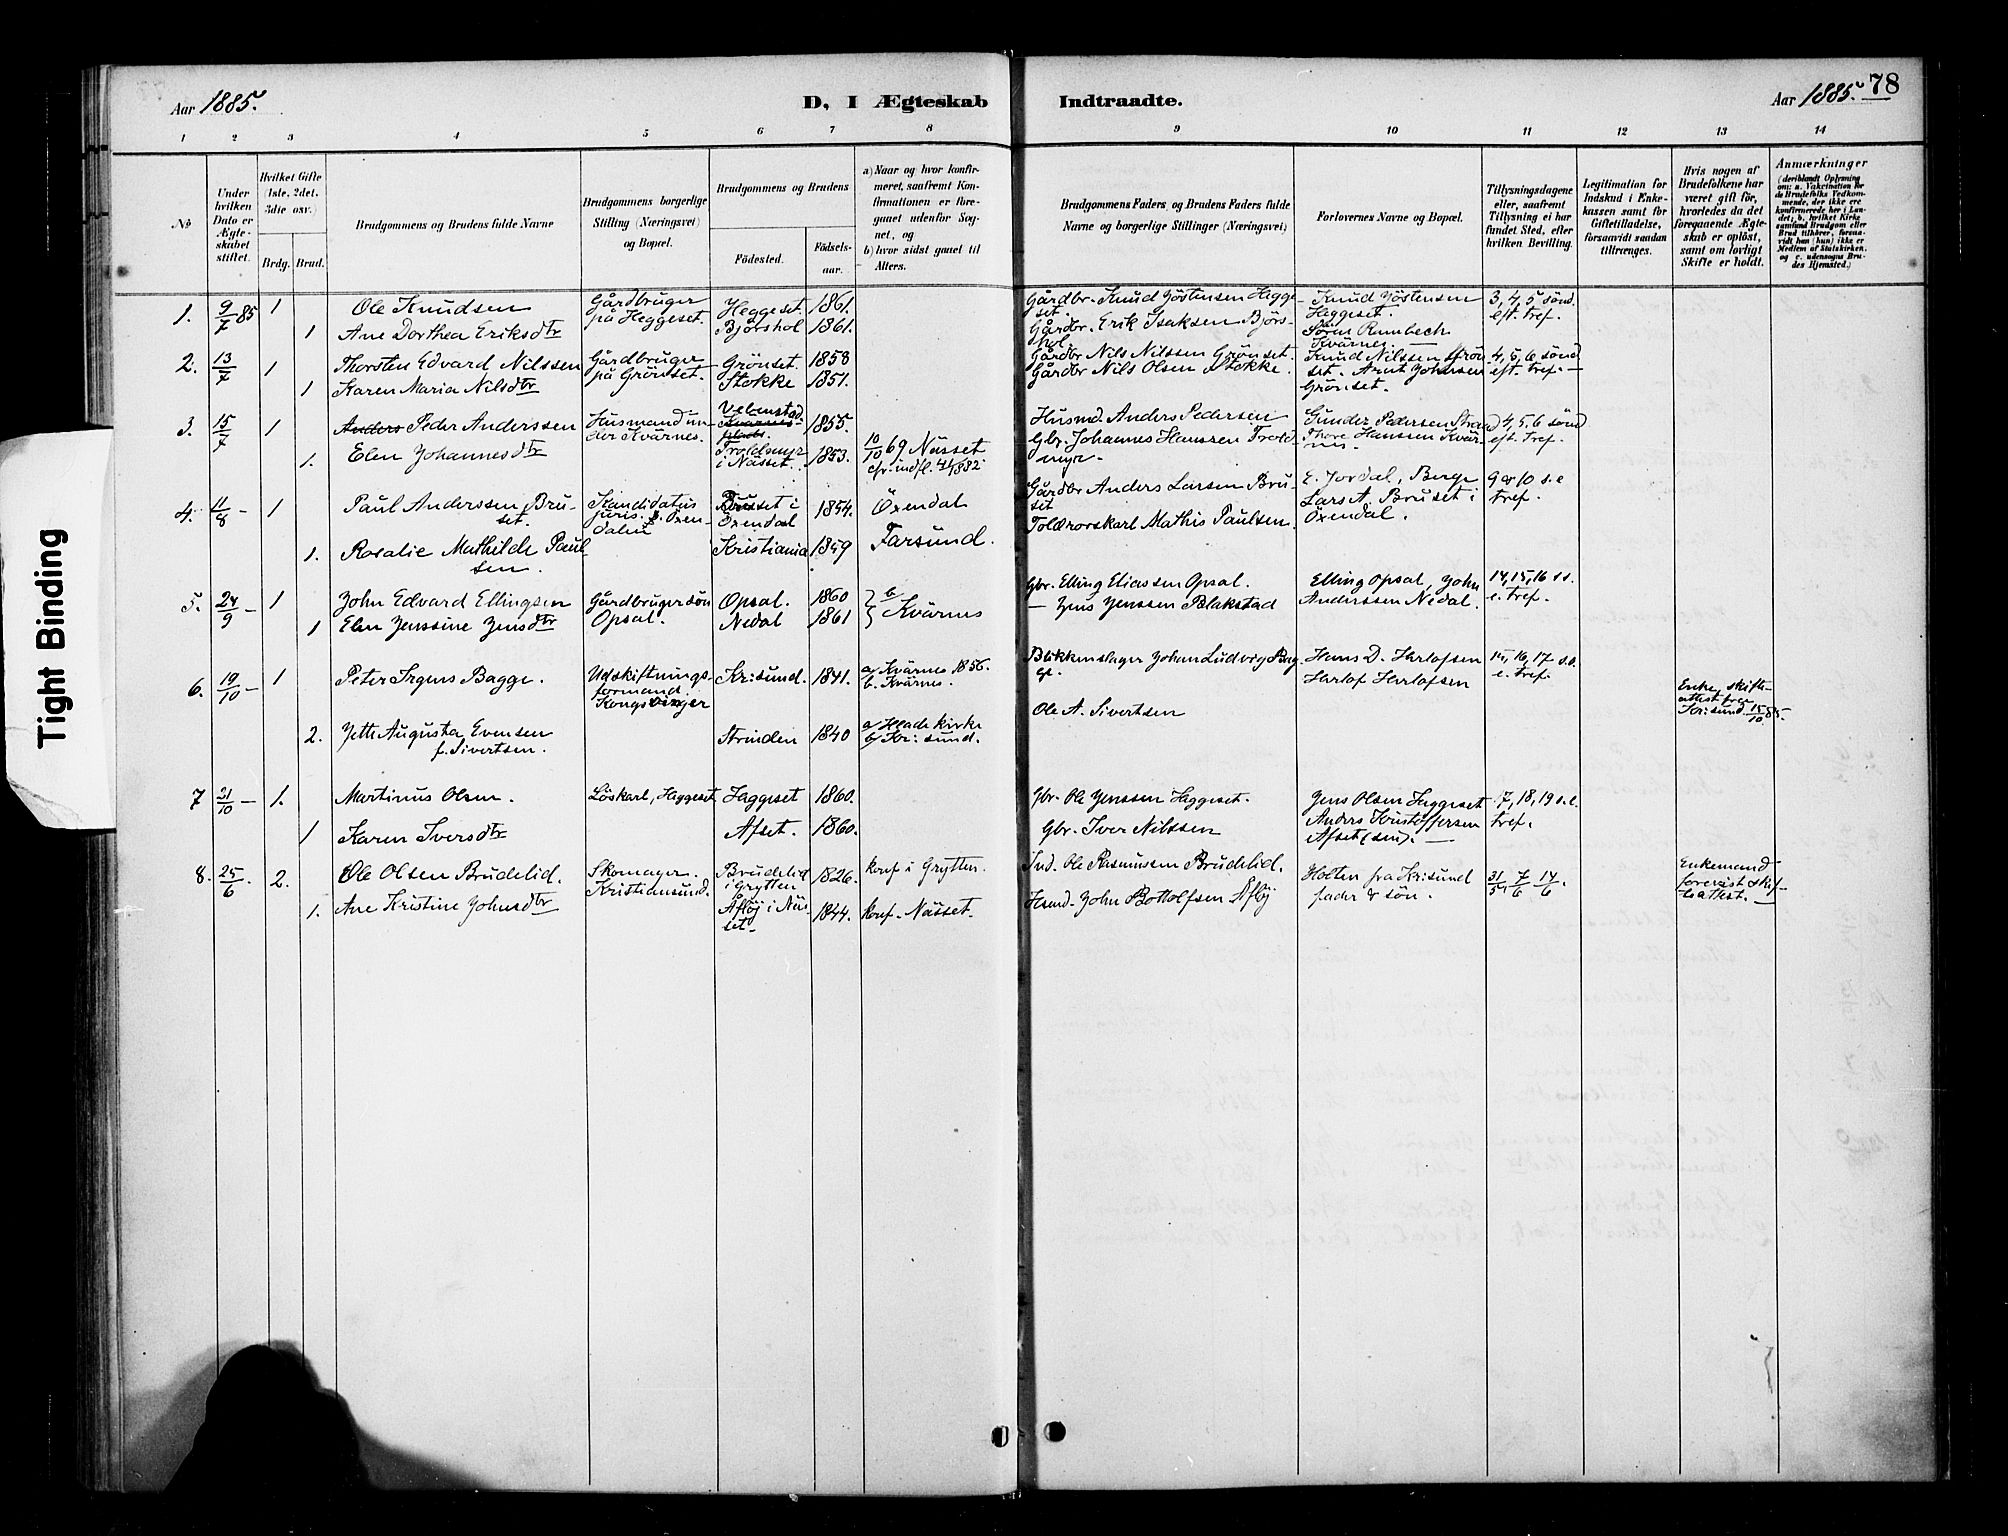 Aar 1885.
D, I Ægteskab
Indtraadte.
Aar 1885. 78
1 2 3 4 5 6 7 8 9 10 11 12 13 14
No
Under hvilken Dato er Ægteskabet stiftet.
Hvilket Gifte (1ste, 2det, 3die osv.)
Brdg. Brud.
Brudgommens og Brudens fulde Navne
Brudgommens borgerlige Stilling (Næringsvei) og Bopæl.
Brudgommens og Brudens
Fødested. Fødselsaar.
a) Naar og hvor konfirmeret, saafremt Konfirmationen er foregaaet udenfor Sognet, og
b) hvor sidst gaaet til Alters.
Brudgommens Faders og Brudens Faders fulde Navne og borgerlige Stillinger (Næringsvei)
Forlovernes Navne og Bopæl.
Tillysningsdagene eller, saafremt Tillysning ei har fundet Sted, efter hvilken Bevilling.
Legitimation for Indskud i Enkekassen samt for Giftetilladelse, forsaavidt saadan tiltrænges.
Hvis nogen af Brudefolkene har været gift før, hvorledes da det foregaaende Ægteskab er opløst, samt om lovligt Skifte er holdt.
Anmærkninger
(deriblandt Oplysning om: a. Vakcination for de Brudefolks Vedkommende, der ikke ere konfirmerede her i Landet; b. hvilket Kirkesamfund Brudgom eller Brud tilhører, forsaavidt han (hun) ikke er Medlem af Statskirken, og c. udensogns Brudes Hjemsted.)
1. 9/7 85 1 Ole Knudsen Gårdbruger på Heggeset. Heggeset. 1861. Gårdbr. Knud Jöstensen Heggeset. Knud Jöstensen Heggeset. 3, 4, 5 sönd. eft. tref.
1 Ane Dorthea Eriksdtr Bjørshol 1861. Gårdbr. Erik Isaksen Björshol Sören Rambech Kvärnes.
2. 13/7 1 Thorsten Edvard Nilssen Gårdbruger på Grönset. Grönset. 1858 Gårdbr Nils Nilssen Grönset. Knud Nilssen Grönset. Arnt Johnsen Grönset. 4, 5, 6 sönd eft. tref.
1 Karen Maria Nilsdtr Stokke 1851. Gårdbr Nils Olsen Stokke.
3. 15/7 1 Anders Peder Anderssen Husmand under Kvärnes. 1855. Husmd. Anders Pedersen Gunder Pedersen Strand 4, 5, 6 sönd eft. tref.
1. Elen Johannesdtr Troldmyr i Nässet. 1853. 10/10 69 Nässet Gbr. Johannes Hanssen Troldmyr. Thore Hanssen Kvärnes
4. 11/8 - 1 Paul Anderssen Bruset. Kandidatus juris. Öxendalen Bruset i Öxendal 1854. Öxendal Gårdbr Anders Larsen Bruset E. Jordal, Berge Lars A. Bruset i Öxendal. 9 & 10 s.e tref.
1. Rosalie Mathilde Paulsen. Kristiania 1859 Farsund. Mathis Paulsen.
5. 24/9 - 1 John Edvard Ellingsen Gårdbrugersön Opsal. Opsal. 1860 b Kvärnes Gbr. Elling Eliassen Opsal. Elling Opsal, John Anderssen Nedal. 14, 15, 16 s.s. e. tref.
1 Elen Jenssine Jensdtr Nedal 1861 — Jens Jenssen Blakstad
6. 19/10 - 1 Peter Irgens Bagge. Udskiftningsformand. Kongsvinger Kr:sund. 1841. a. Kvärnes 1856. b. Kvärnes. Blikkenslager Johan Ludvig Bagge. Hans D. Herlofsen Herlof Herlofsen 15, 16, 17 s.s. e. tref.
2. Jette Augusta Evensen f. Sivertsen. Strinden 1840 a. Hlade kirke b. Kr:sund. Ole A. Sivertsen Enke, skifteattest fra Kr:sund 15/10 85.
7 31/10 - 1. Martinus Olsen. Löskarl, Heggeset Heggeset 1860. Gbr. Ole Jenssen Heggeset. Jens Olsen Heggeset 17, 18, 19 s.e. tref.
1 Karen Iversdtr Afset. 1860. Gbr. Iver Nilssen Anders Kristoffersen Afset (sen).
8. 25/6. 2. Ole Olsen Brüdelid. Skomager. Kristiansund. Brüdelid i Grytten 1826. konf i Grytten. Ind. Ole Rasmussen Brüdelid. Holten fra Kr:sund fader & sön. 31/5, 7/6 14/6. Enkemand forevist skifteattest.
1. Ane Kristine Johnsdtr Aflöj i Nässet. 1844. konf. Nässet. Husmd. John Bottolfsen Aflöj
Tight Binding